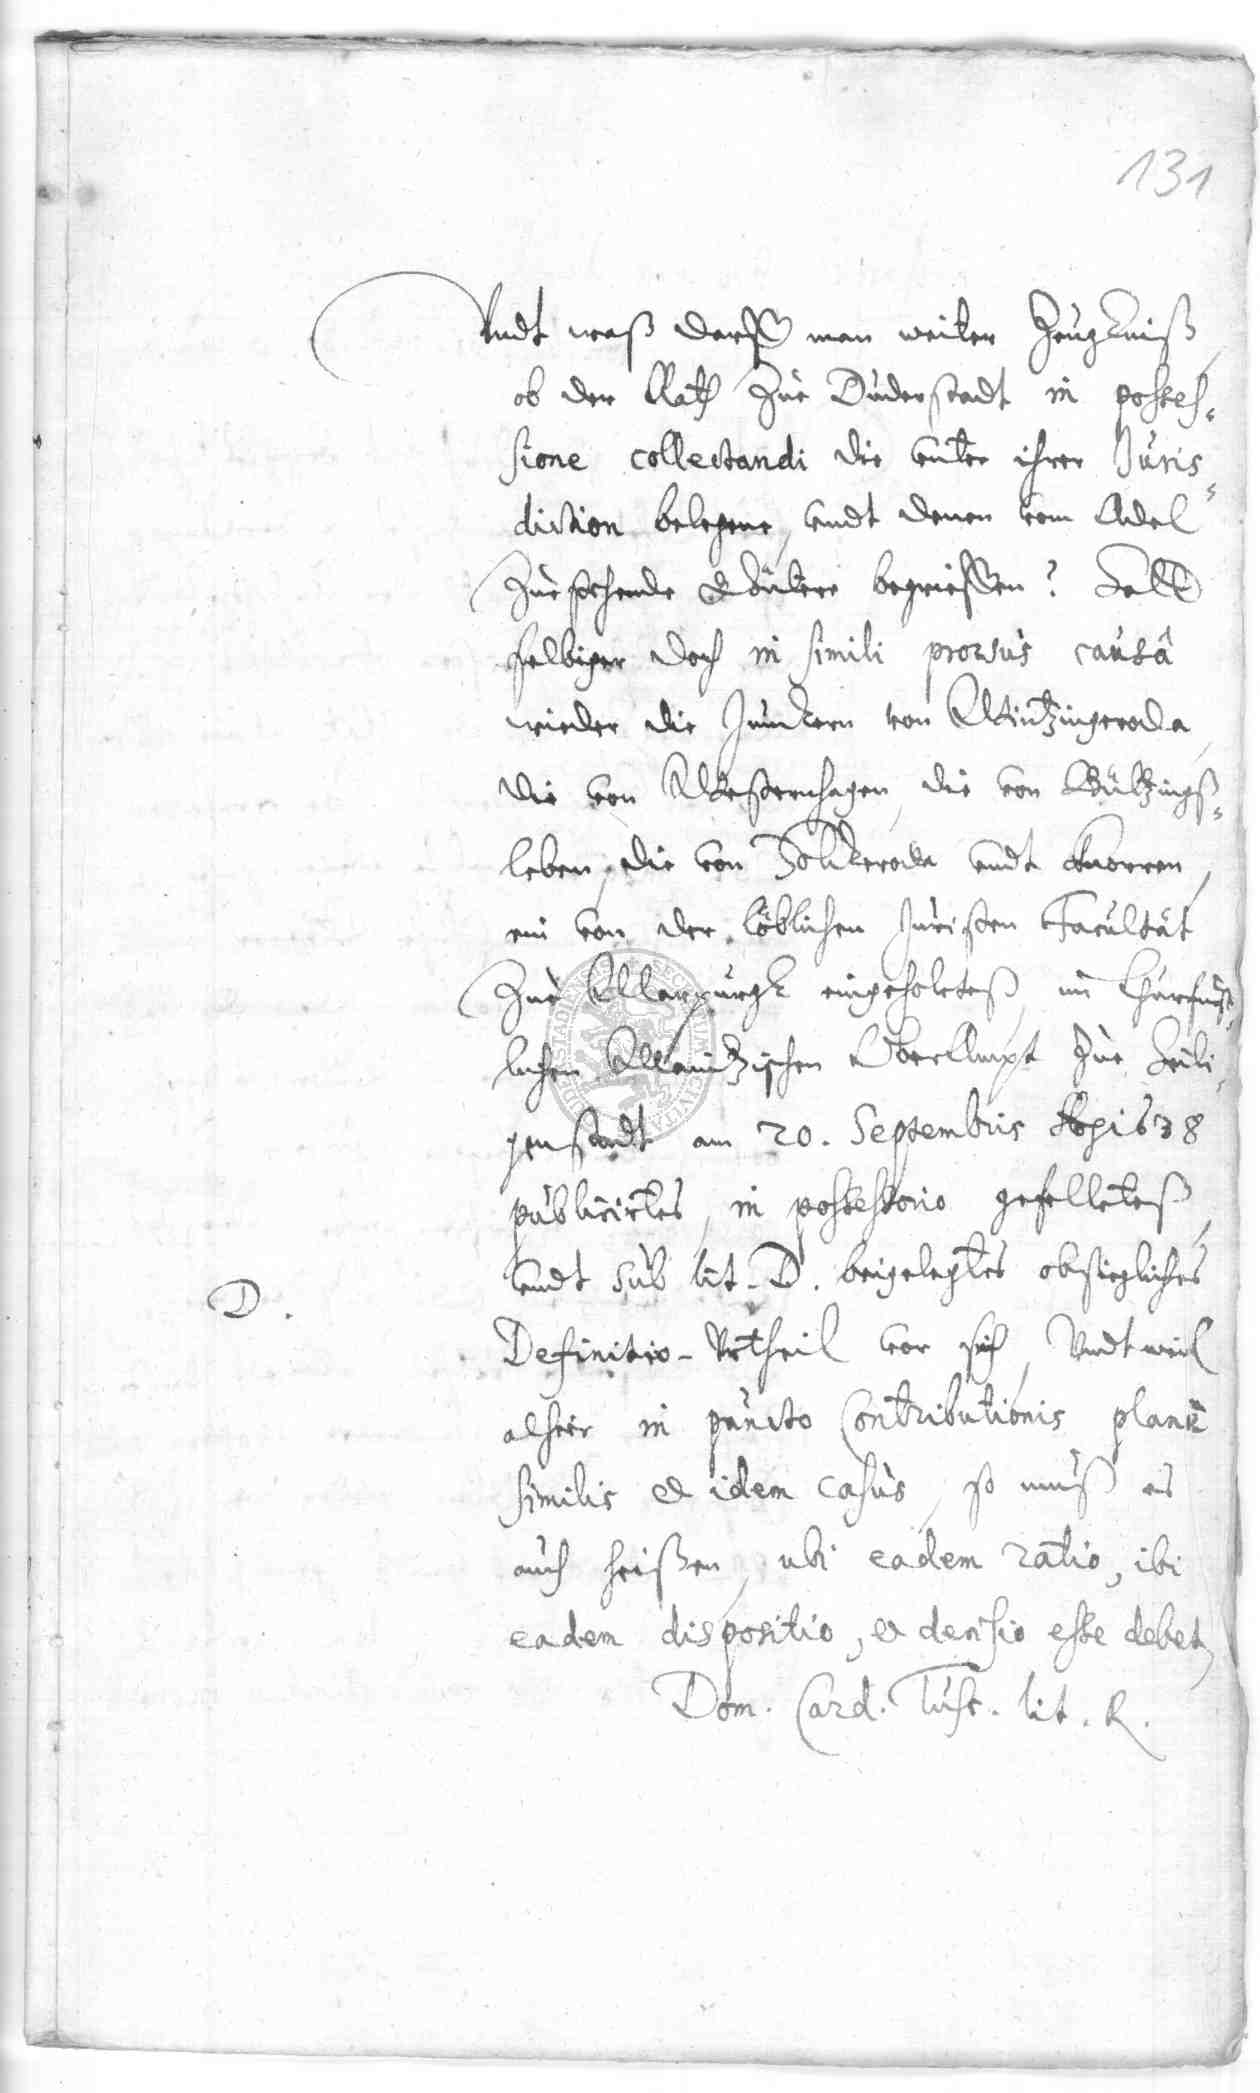 131
Vndt waß darff man weiter Zeugkniß,
ob der Rath Zue Duderstadt in posses-
sione collectandi die vnter ihrer Juris-
diction belegene, vndt denen vom Adel
Zuestehende Gütere begrieffen? Hatt
selbiger doch in simili prorsus causâ
wieder die Junckern von Wintzingeroda,
die von Westernhagen, die von Bültzings-
leben, die von Bodkeroda vndt Knorren,
ein von der löblichen Juristen Facultät
Zue Marpurgk eingeholetes, im Churfürst-
lichen Maintzischen OberAmpt Zue Heili-
genstadt am 20. Septembris 1638
publicirtes, in possessorio gefelletes,
vndt sub lit. D. beigelegtes obsiegliches
D.
Definitiv-Vrtheil vor sich, Vndt weil
alhier in puncto Contributionis planè
similis et idem casus, so muß es
auch heißen, ubi eadem ratio, ibi
eadem dispositio, et decisio esse debet,
Dom. Card. Tusc. lit. R.